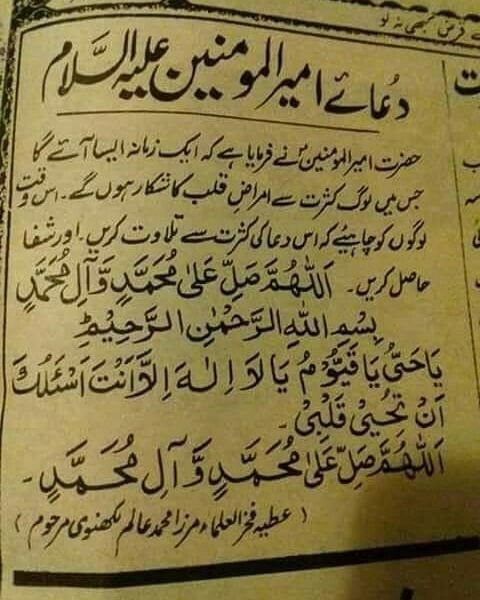 کے قرض کبھی نہ لو
دُعائے امیرالمومنین علیہ السَّلام
حضرت امیرالمومنینؑ نے فرمایا ہے کہ ایک زمانہ ایسا آئے گا
جس میں لوگ کثرت سے امراضِ قلب کا شکار ہوں گے۔ اس وقت
لوگوں کو چاہیئے کہ اس دعا کی کثرت سے تلاوت کریں۔ اور شفا
حاصل کریں۔ اَللّٰهُمَّ صَلِّ عَلٰی مُحَمَّدٍ وَّآلِ مُحَمَّدٍ
بِسْمِ اللهِ الرَّحْمٰنِ الرَّحِیْمِ
یَاحَیُّ یَا قَیُّوْمُ یَا لَا اِلٰهَ اِلَّا اَنْتَ اَسْئَلُكَ
اَنْ تُحْیِیَ قَلْبِیْ۔
اَللّٰهُمَّ صَلِّ عَلٰی مُحَمَّدٍ وَّ آلِ مُحَمَّدٍ۔
(عطیہ فخر العلماء مرزا محمد عالم لکھنوی مرحوم)